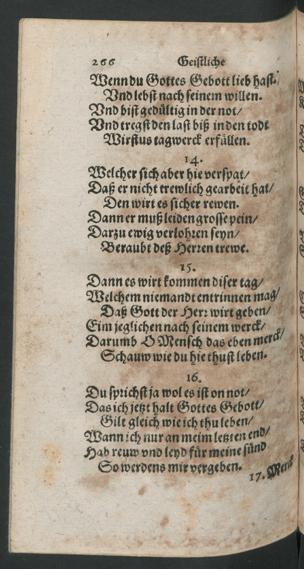 266 Geistliche
Wenn du Gottes Gebott lieb hast.
Vnd lebst nach seinem willen.
Vnd bist gedültig in der not/
Vnd tregst den last biß in den todt
Wirstus tagwerck erfüllen.
14.
Welcher sich aber hie verspat/
Daß er nicht trewlich gearbeit hat/
Den wirt es sicher rewen.
Dann er muß leiden grosse pein/
Darzu ewig verlohren seyn/
Beraubt deß Herren trewe.
15.
Dann es wirt kommen diser tag/
Welchem niemandt entrinnen mag/
Daß Gott der Herr wirt geben/
Eim jeglichen nach seinem werck/
Darumb O Mensch das eben merck/
Schauw wie du hie thust leben.
16.
Du sprichst ja wol es ist on not/
Das ich jetzt halt Gottes Gebott/
Gilt gleich wie ich thu leben/
Wann ich nur an meim letzten end/
Hab reuw vnd leyd für meine sünd
So werdens mir vergeben.
17. Merck